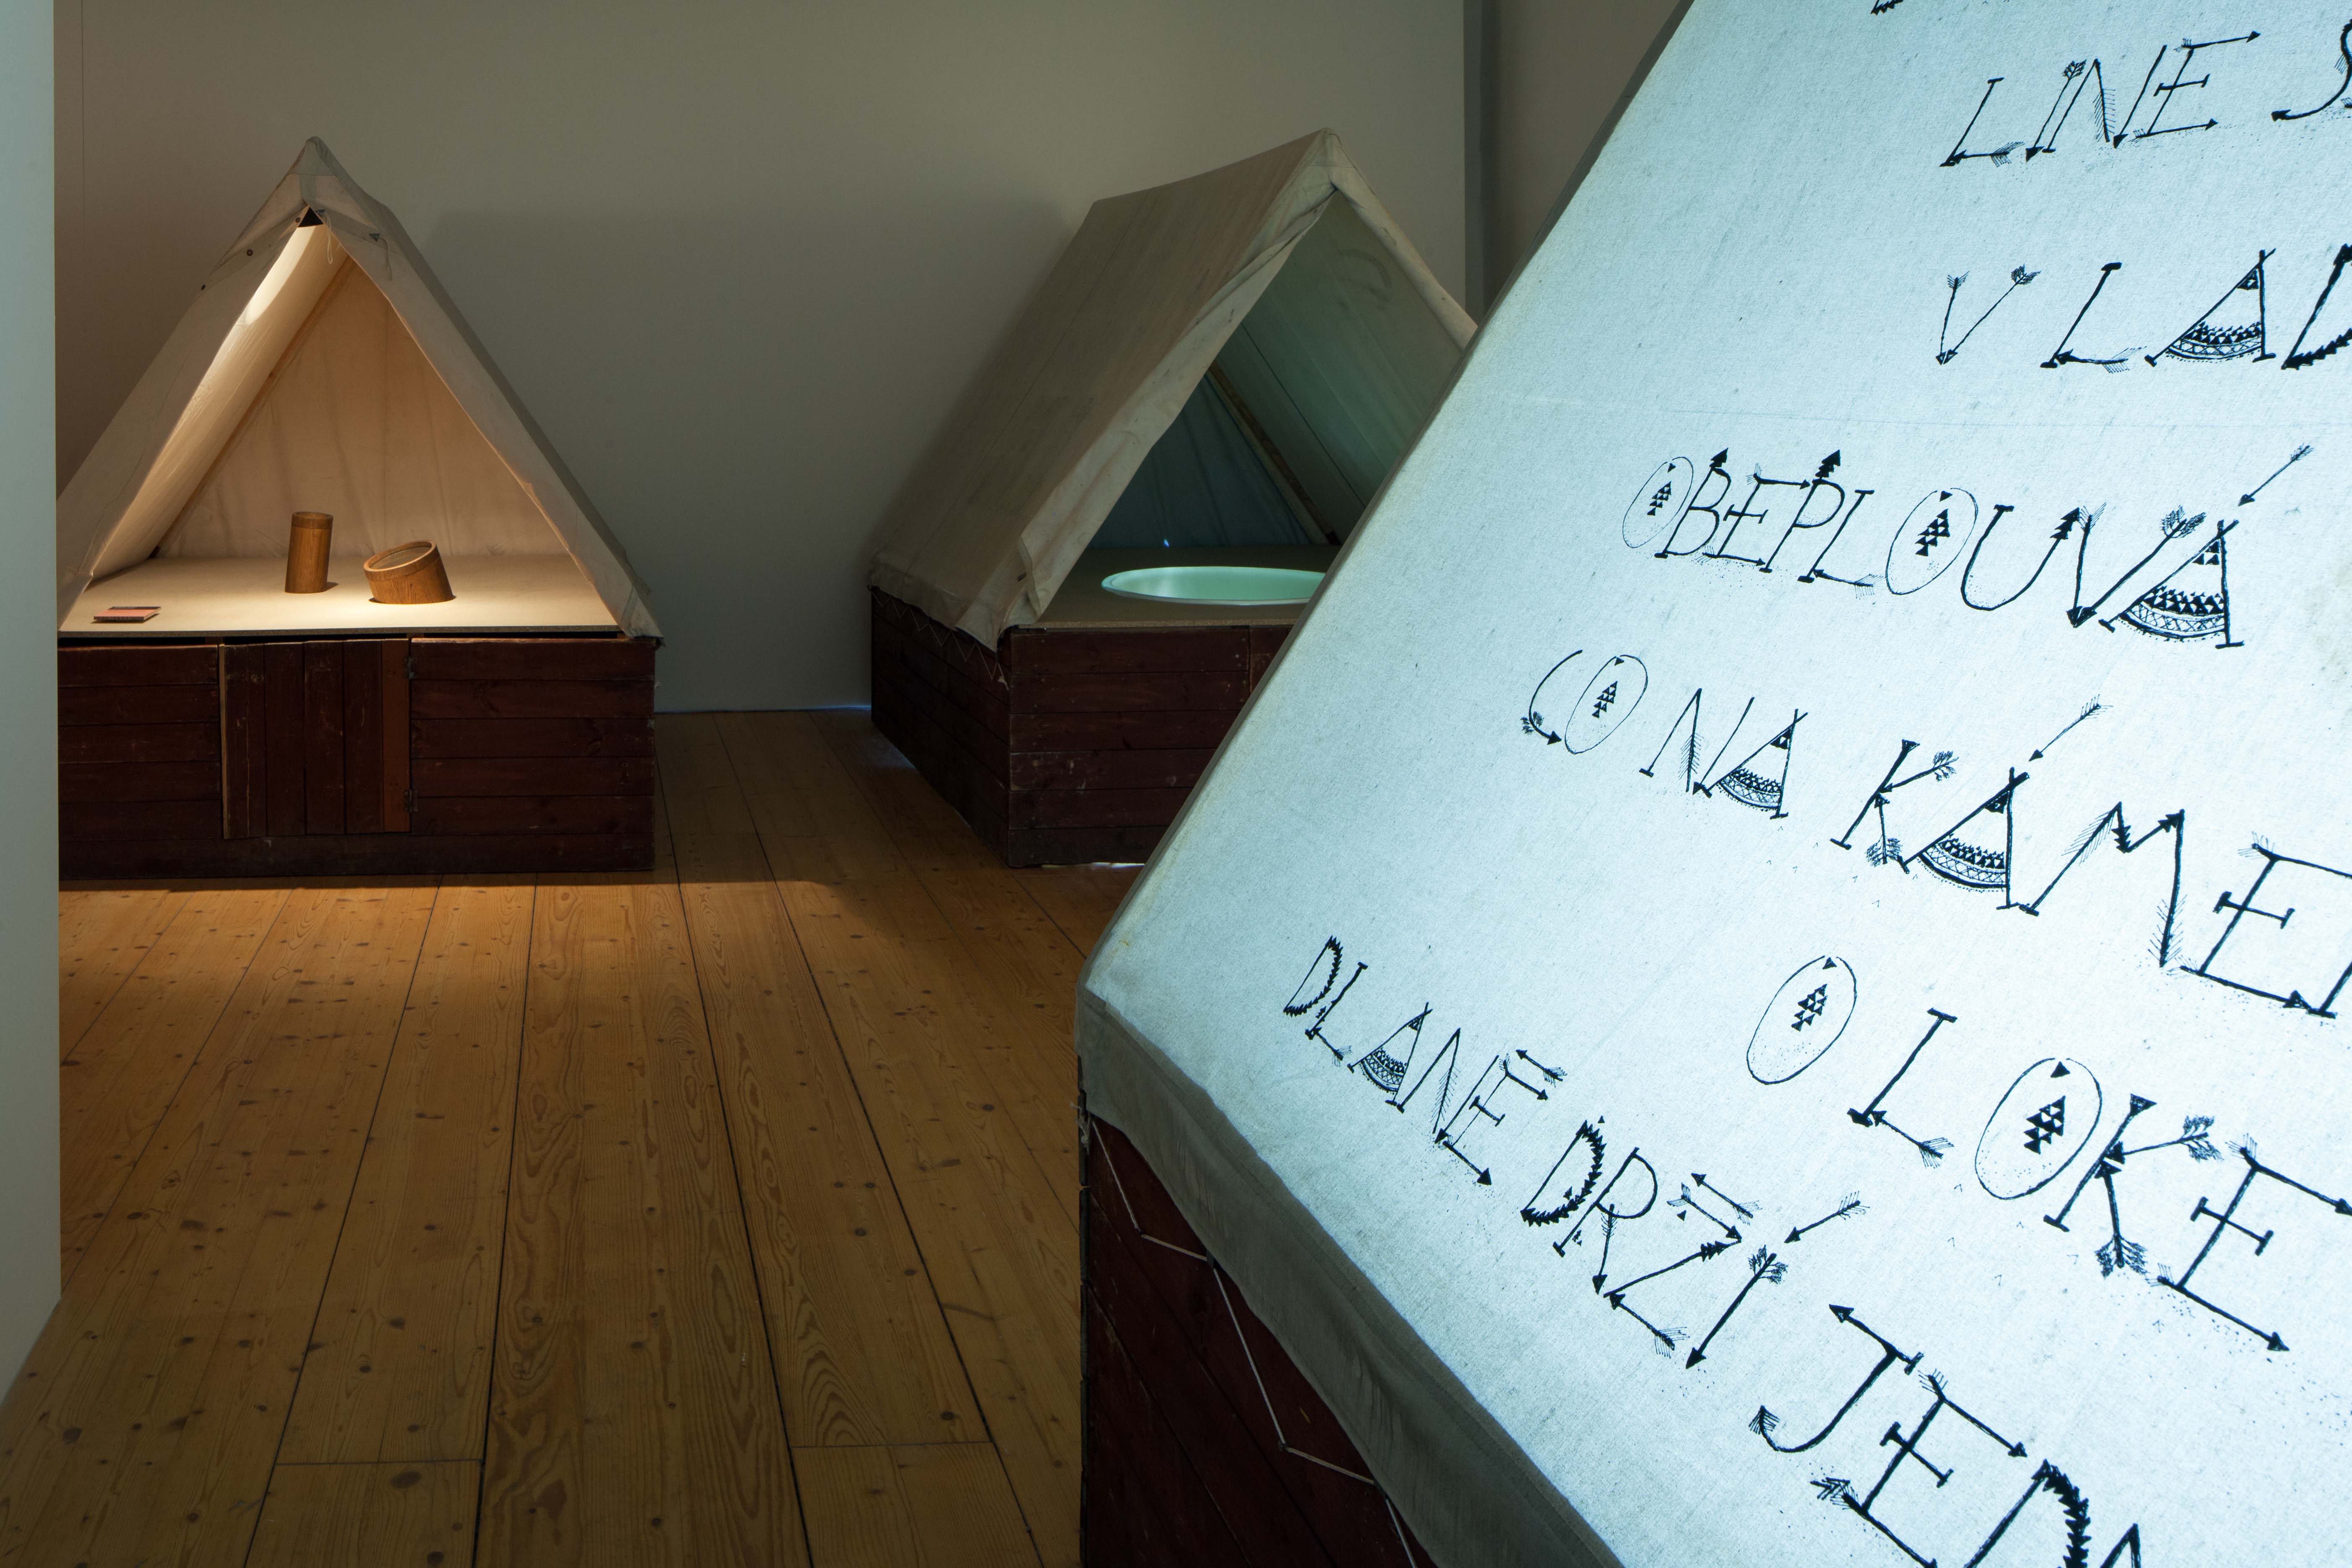 LINE S
V LAD
OBEPLOUVÁ
CO NA KÁMEN
O LOKE
DLANĚ DRŽÍ JEDN